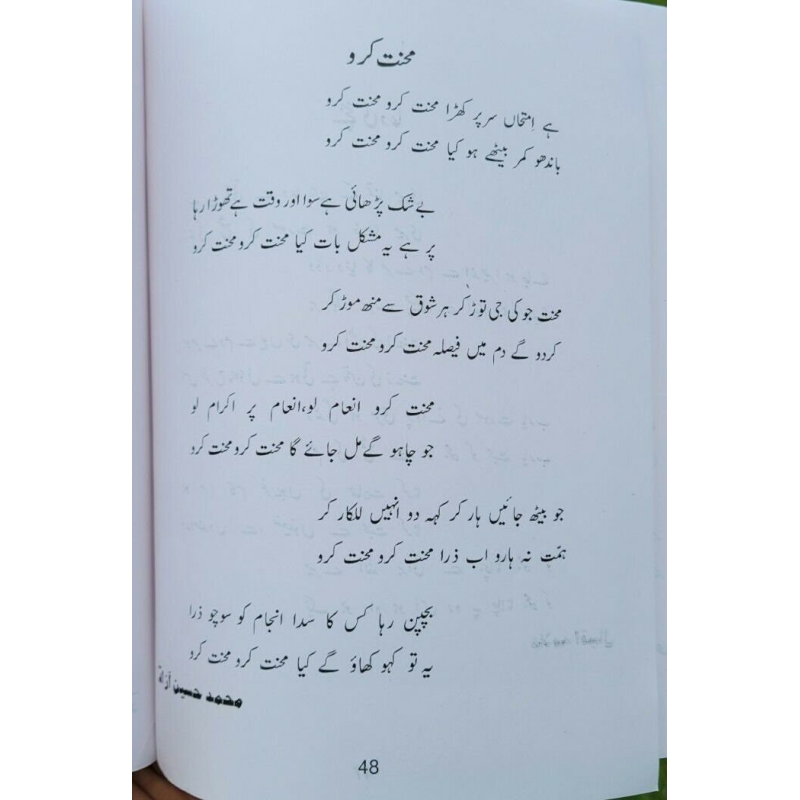 محنت کرو
ہے اِمتحاں سر پر کھڑا محنت کرو محنت کرو
باندھو کمر بیٹھے ہو کیا محنت کرو محنت کرو
بے شک پڑھائی ہے سوا اور وقت ہے تھوڑا رہا
پر ہے یہ مشکل بات کیا محنت کرو محنت کرو
محنت جو کی جی توڑ کر ہر شوق سے منھ موڑ کر
کردو گے دم میں فیصلہ محنت کرو محنت کرو
محنت کرو انعام لو، انعام پر اکرام لو
جو چاہو گے مل جائے گا محنت کرو محنت کرو
جو بیٹھ جائیں ہار کر کہہ دو انہیں للکار کر
ہمّت نہ ہارو اب ذرا محنت کرو محنت کرو
بچپن رہا کس کا سدا انجام کو سوچو ذرا
یہ تو کہو کھاؤ گے کیا محنت کرو محنت کرو
محمد حسین آزاد
48